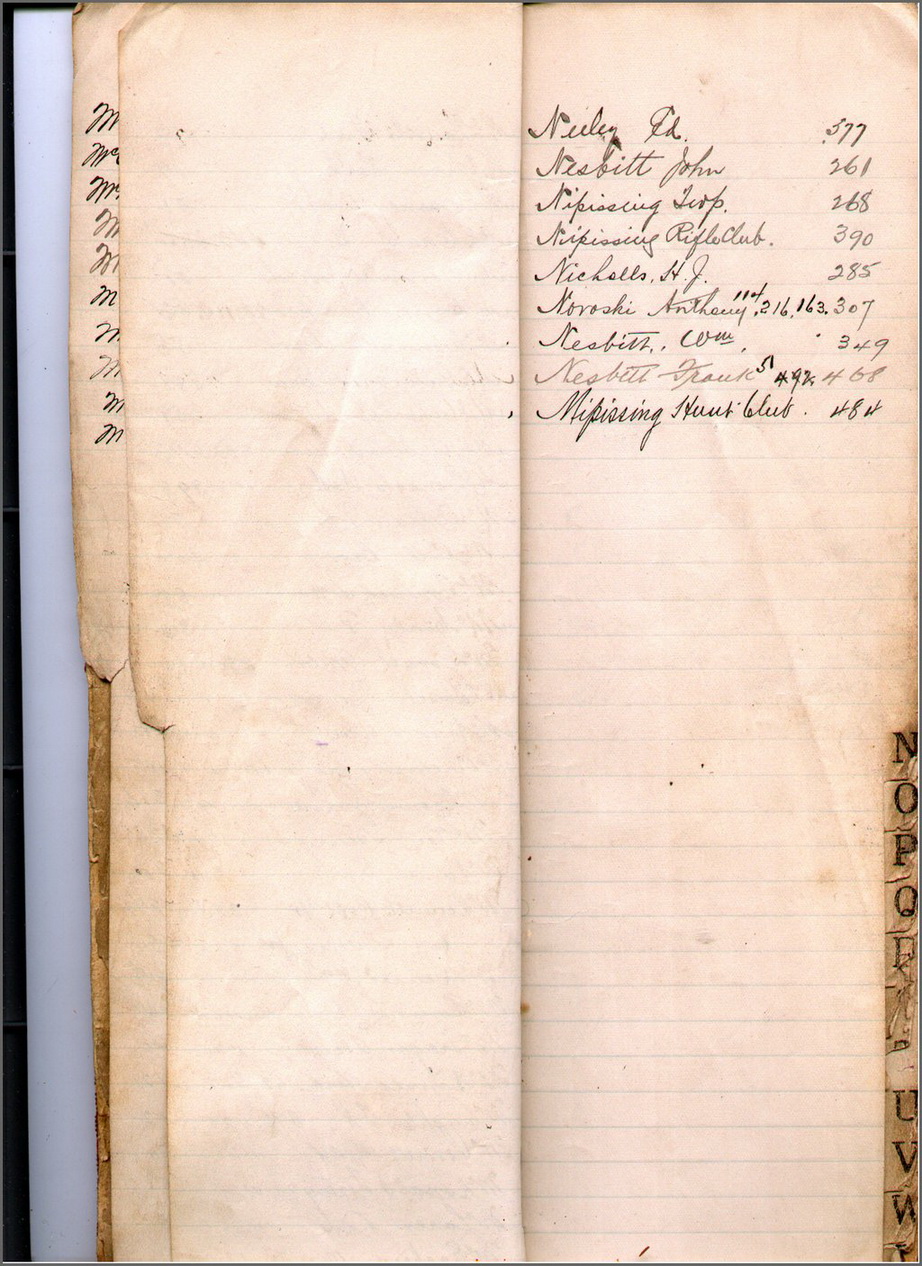 M
Mc
M
M
M
M
M
M
M
M
Neeley Ed. 577
Nesbitt John 261
Nipissing Twp. 268
Nipissing Rifle Club. 390
Nicholls, H. J. 285
Noroski Anthony 114, 216, 163, 307
Nesbitt, Wm, 349
Nesbitt Frank 51 492, 468
Nipissing Hunt Club. 484
N
O
P
Q
R
U
V
W